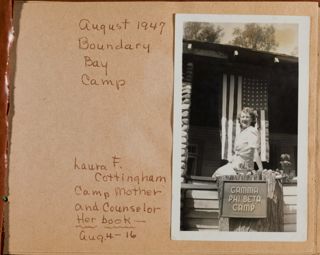 August 1947
Boundary
Bay
Camp
Laura F.
Cottingham
Camp Mother
and Counselor
Her book—
Aug. 4-16
GAMMA
PHI BETA
CAMP